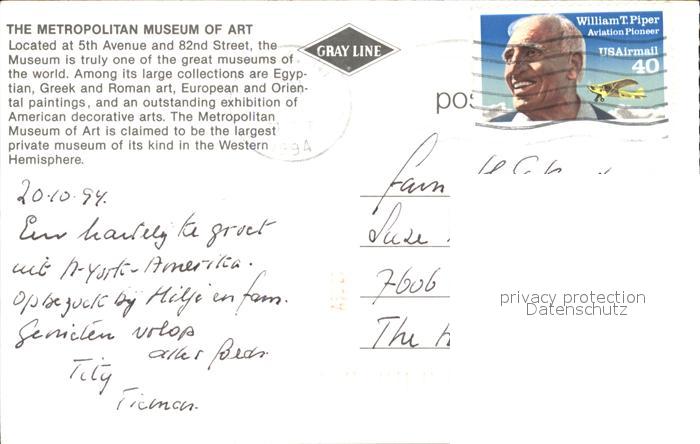 THE METROPOLITAN MUSEUM OF ART
Located at 5th Avenue and 82nd Street, the
Museum is truly one of the great museums of
the world. Among its large collections are Egyp-
tian, Greek and Roman art, European and Orien-
tal paintings, and an outstanding exhibition of
American decorative arts. The Metropolitan
Museum of Art is claimed to be the largest
private museum of its kind in the Western
Hemisphere.
GRAY LINE
William T. Piper
Aviation Pioneer
USAirmail
40
pos
20-10-94.
Een hartelijke groet
uit N-York-Amerika.
Op bezoek bij Hilje en fam.
Genieten volop
Tity
Tieman.
fam
7606
The
privacy protection
Datenschutz